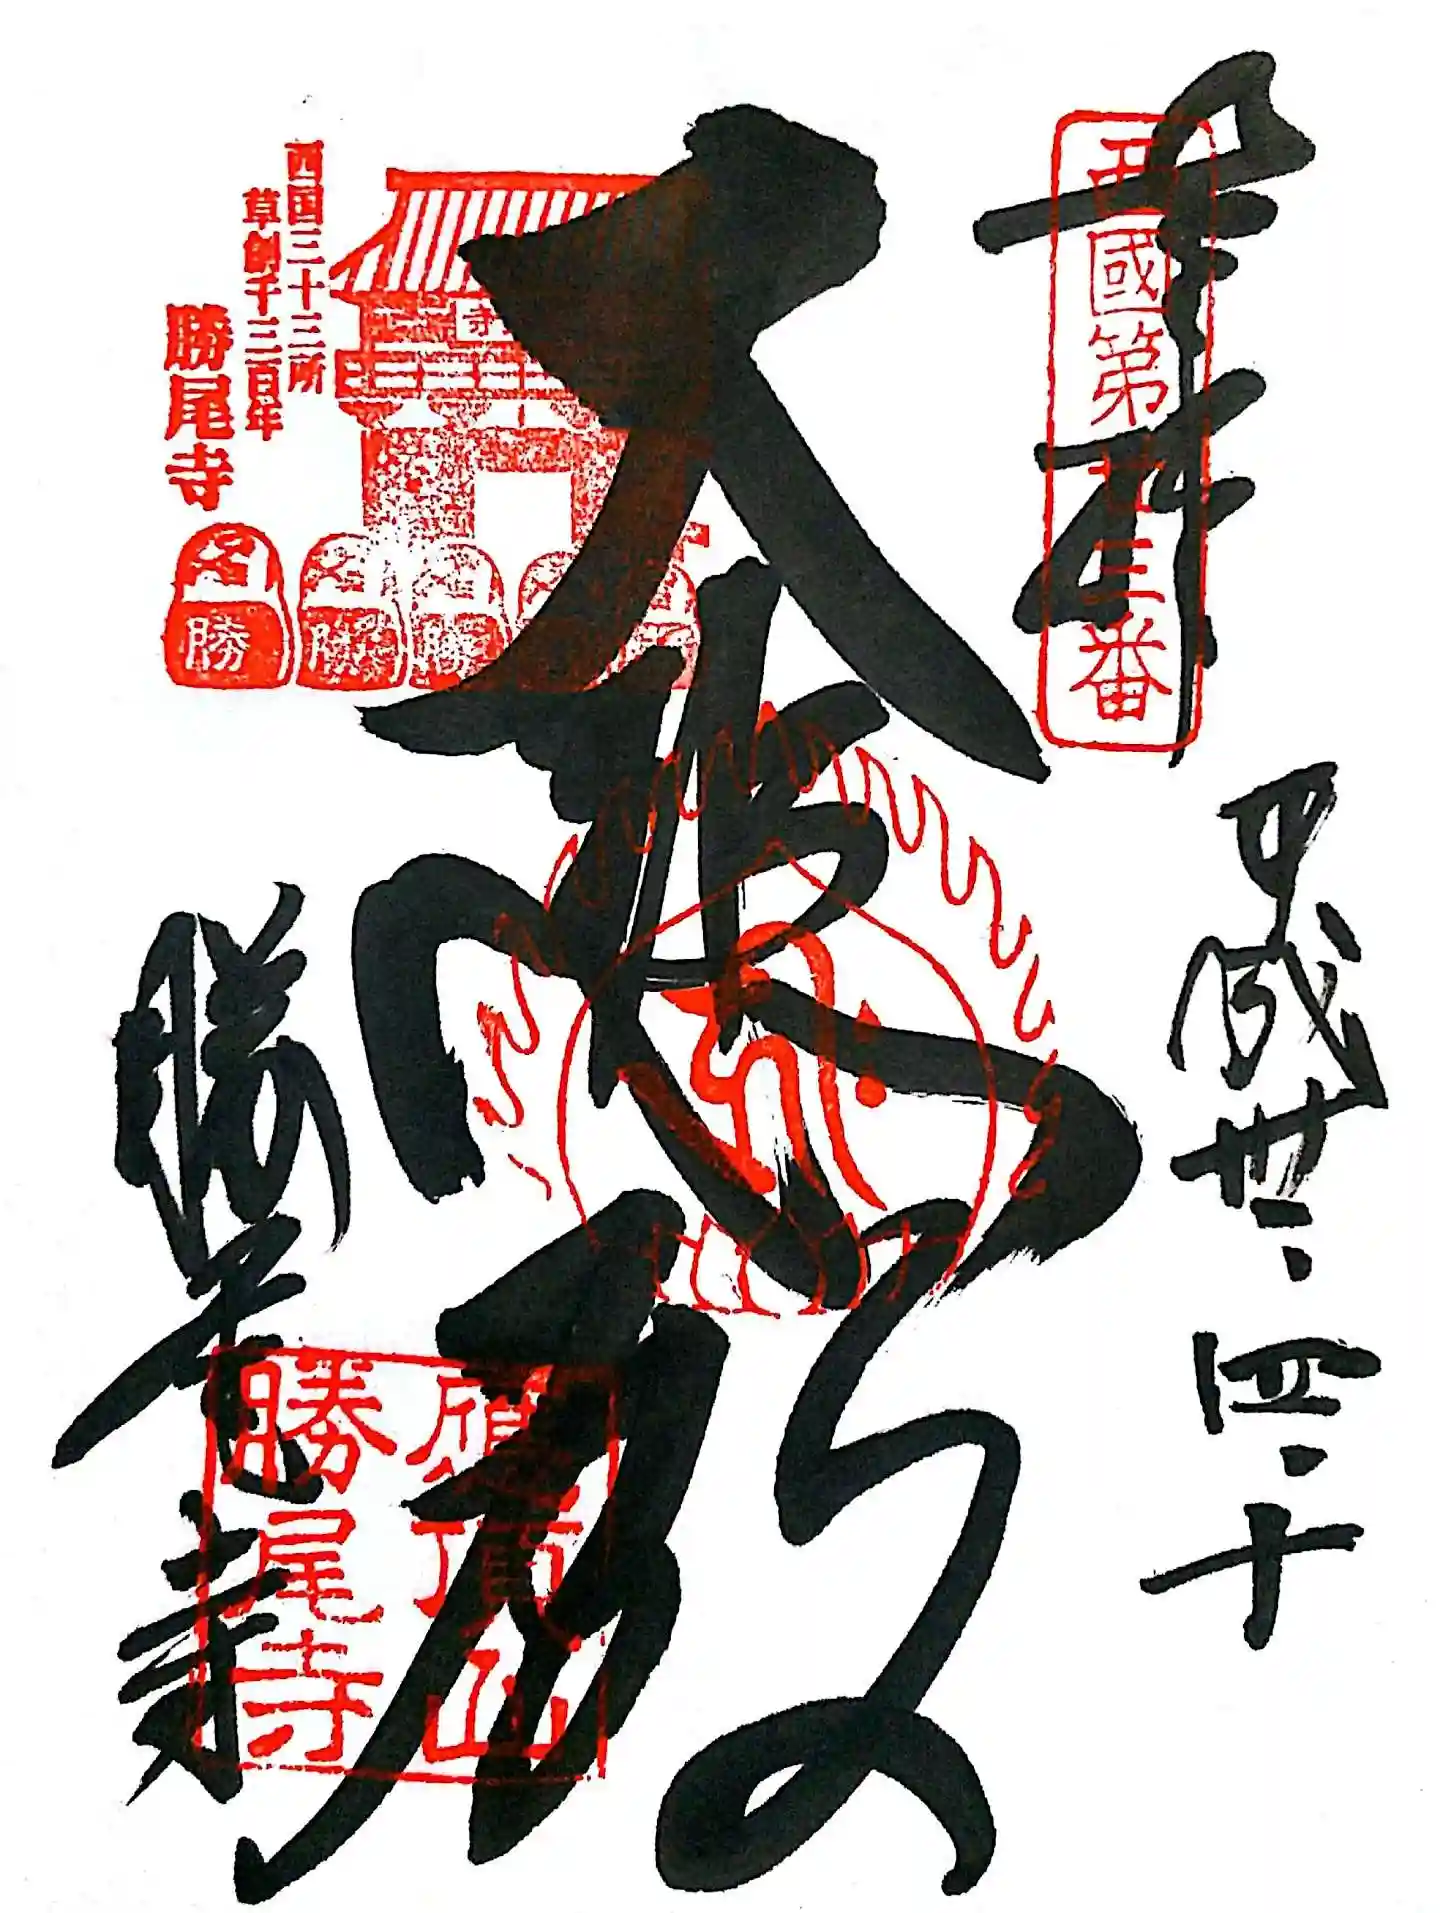 奉拝
西國第廿三番
平成卅一・四・十
大悲殿
西国三十三所
草創千三百年
勝尾寺
寺
勝
勝
勝
勝尾寺
應頂山
勝尾寺